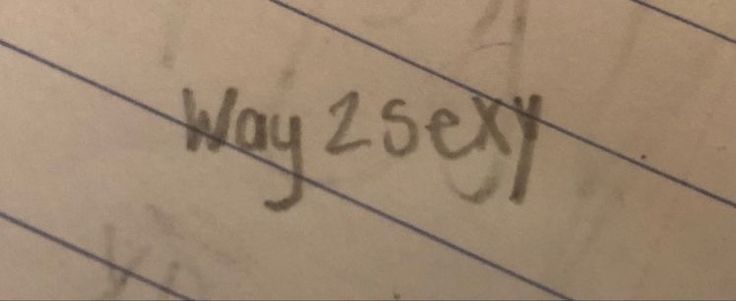 Way 2 sexy